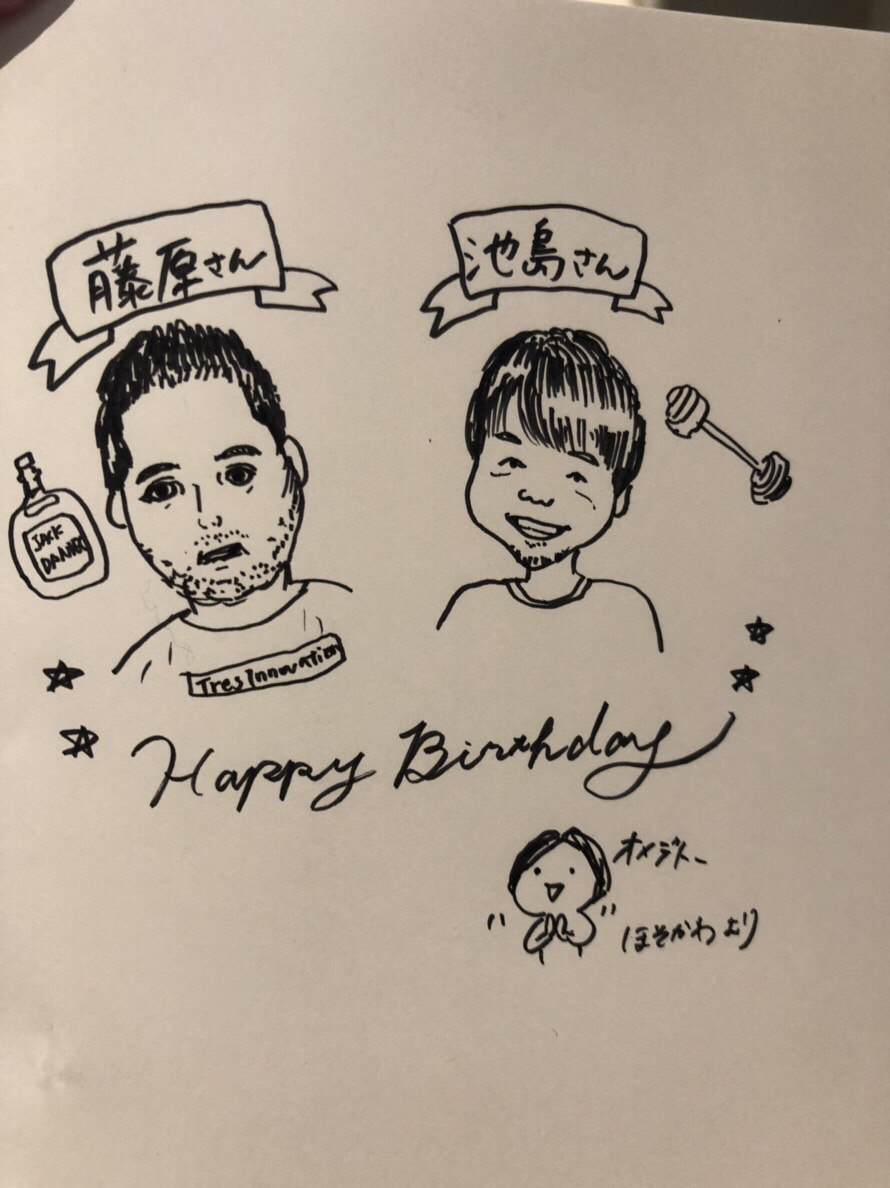 藤原さん
池島さん
JACK
DANIEL
Tres Innovation
Happy Birthday
オメデトー
ほそかわより